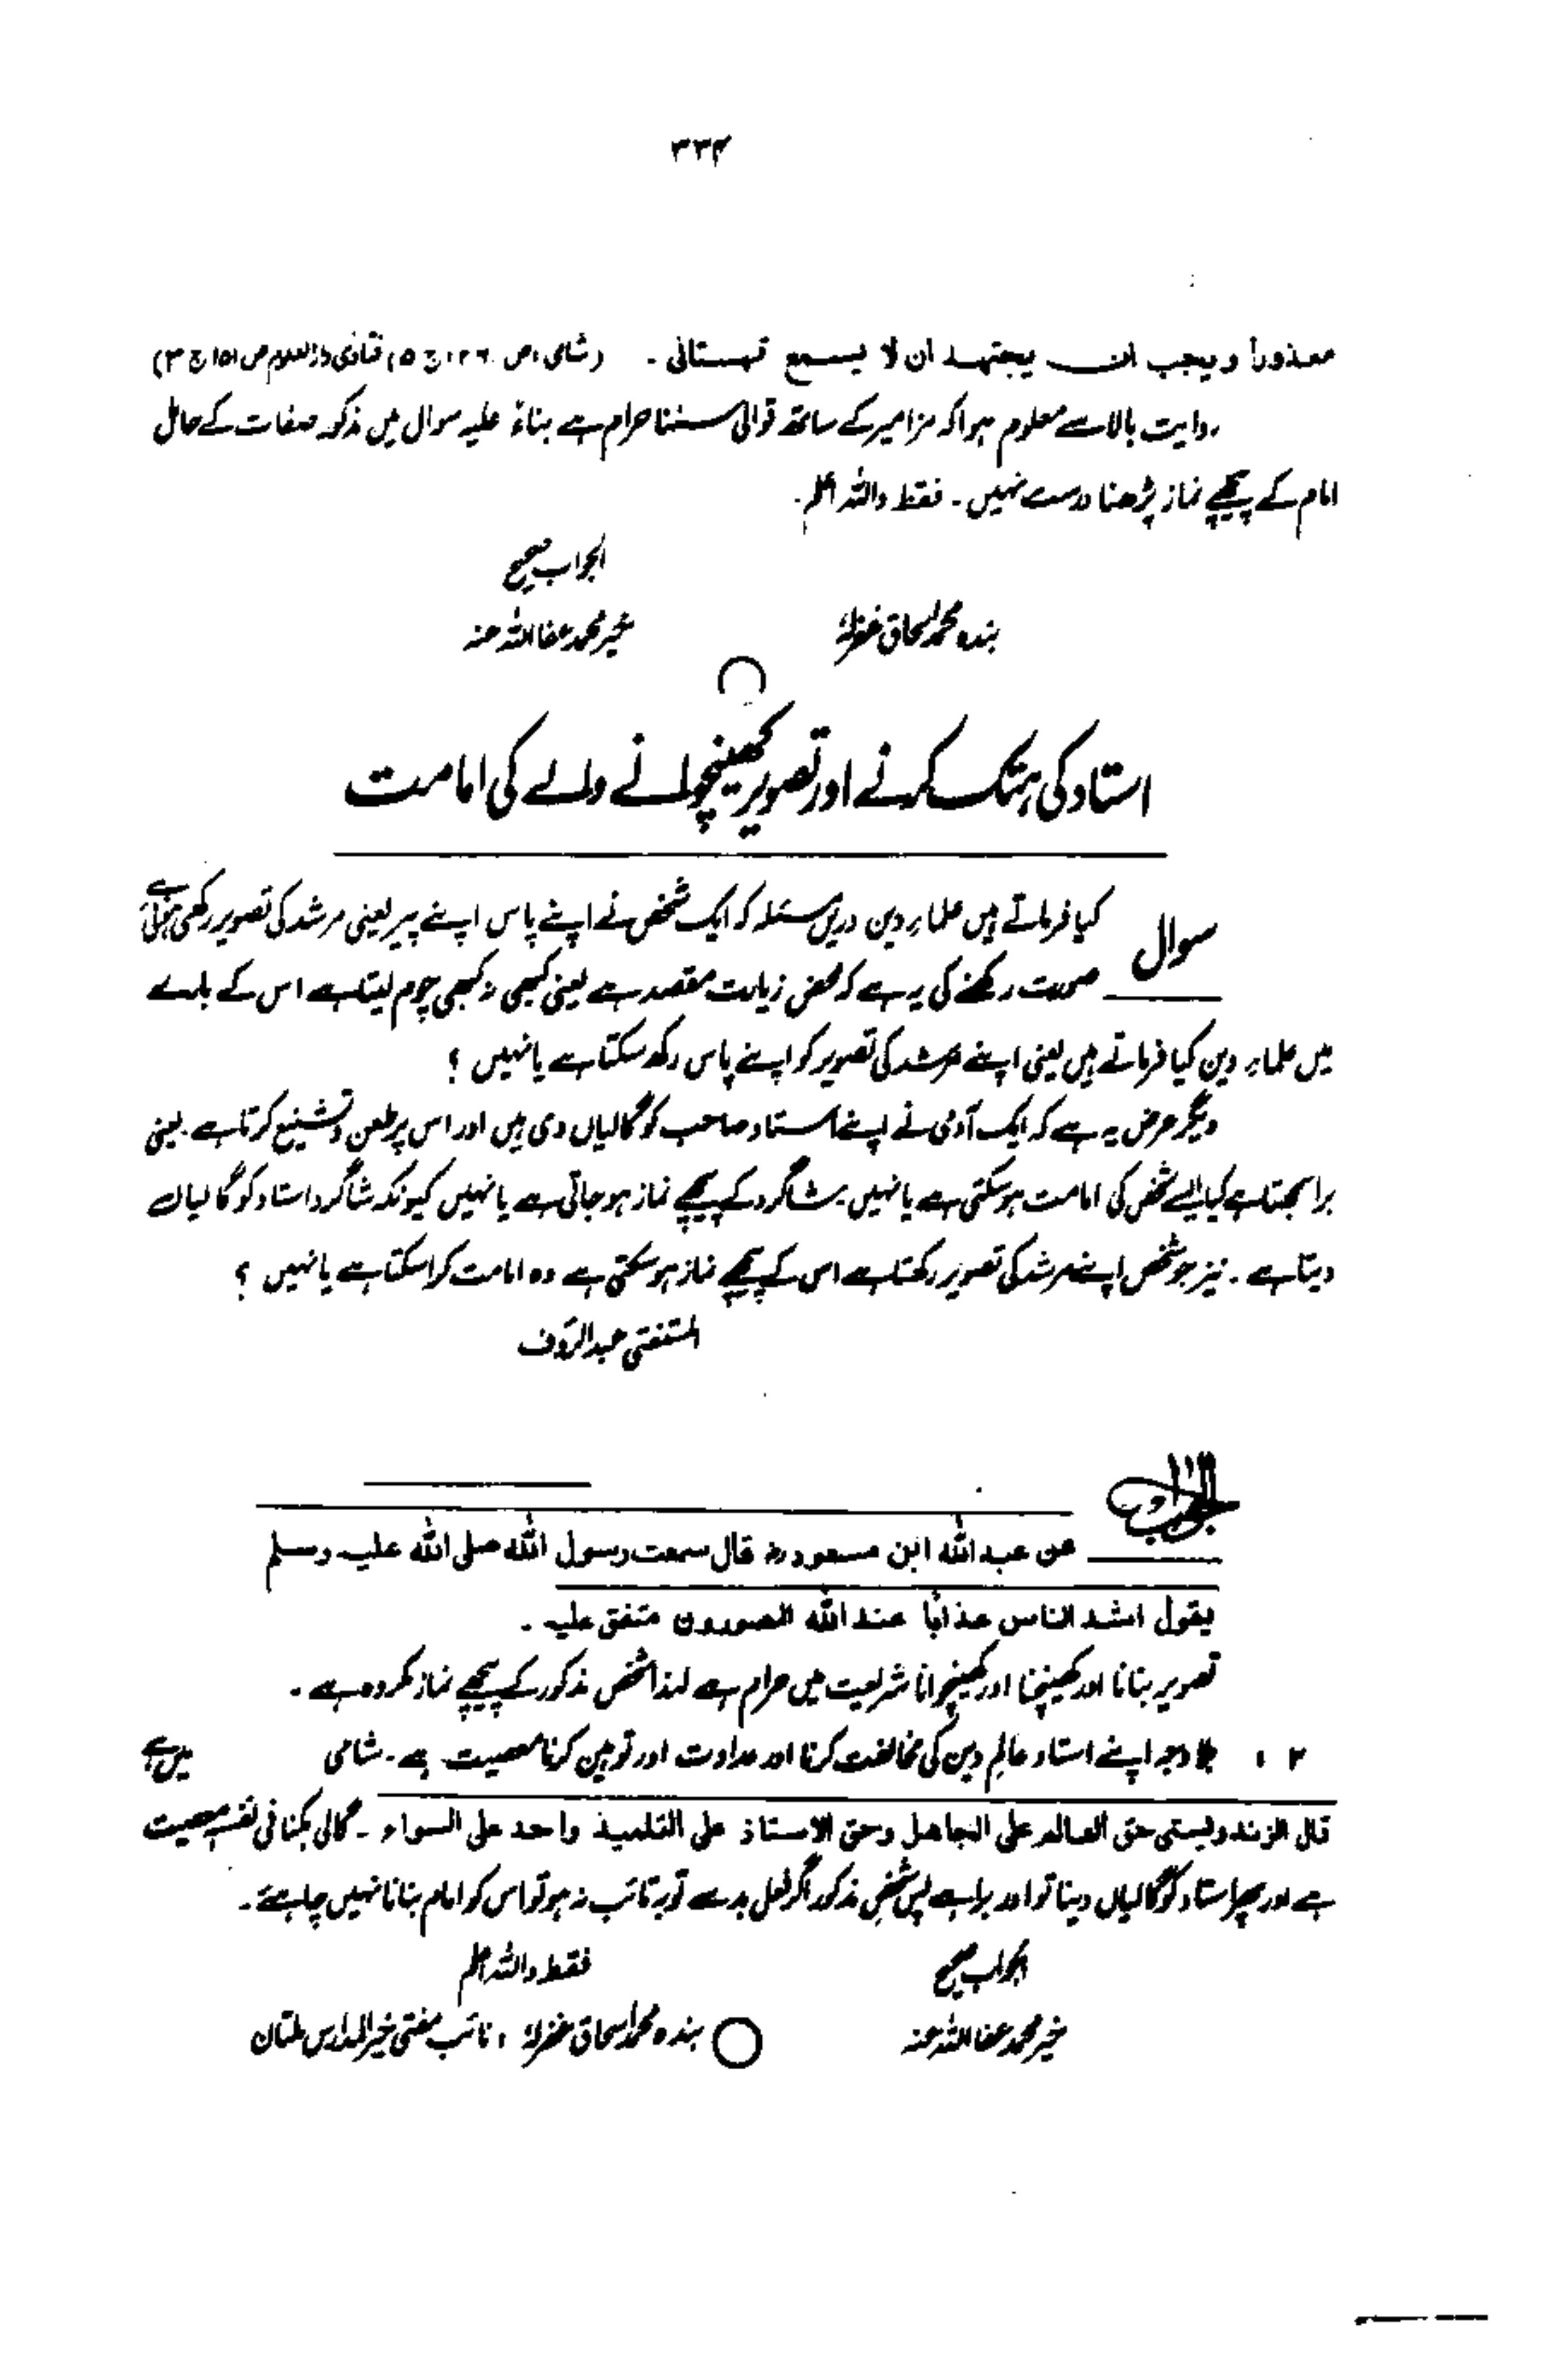 ۳۳۴
معذوراً ويجب ان يجتهد ان لا يسمع قهستانی ۔ (شامی، ص ج ۵) فتاویٰ دارالعلوم ص ۱۵۱ ج ۳)
روایت بالا سے معلوم ہوا کہ مزامیر کے ساتھ قوالی سننا حرام ہے بناءً علیہ سوال میں مذکور صفات کے حامل
امام کے پیچھے نماز پڑھنا درست نہیں ۔ فقط واللہ اعلم ۔
الجواب صحیح
بندہ محمد اسحاق غفرلہٗ
خیر محمد عفا اللہ عنہ
استاد کی ہتک کرنے اور تصویر کھینچوانے والے کی امامت
سوال
کیا فرماتے ہیں علماءِ دین دریں مسئلہ کہ ایک شخص نے اپنے پاس اپنے پیر یعنی مرشد کی تصویر رکھی ہوئی ہے
صورت رکھنے کی یہ ہے کہ محض زیارت مقصد ہے یعنی کبھی نہ کبھی چوم لیتا ہے اس کے بارے
میں علماءِ دین کیا فرماتے ہیں یعنی اپنے مرشد کی تصویر کو اپنے پاس رکھ سکتا ہے یا نہیں ؟
دیگر عرض یہ ہے کہ ایک آدمی نے اپنے استاد صاحب کو گالیاں دی ہیں اور اس پر طعن و تشنیع کرتا ہے ۔ یعنی
برا سمجھتا ہے کیا ایسے شخص کی امامت ہو سکتی ہے یا نہیں ۔ شاگرد کے پیچھے نماز ہو جاتی ہے یا نہیں کیونکہ شاگرد استاد کو گالیاں
دیتا ہے ۔ نیز جو شخص اپنے مرشد کی تصویر رکھتا ہے اس کے پیچھے نماز ہو سکتی ہے وہ امامت کرا سکتا ہے یا نہیں ؟
المستفتی عبدالرؤف
الجواب
عن عبد الله ابن مسعود رض قال سمعت رسول الله صلى الله عليه وسلم
يقول اشد الناس عذابًا عند الله المصورون متفق عليه ۔
تصویر بنانا اور کھینچنا اور کھینچوانا شریعت میں حرام ہے لہٰذا شخص مذکور کے پیچھے نماز مکروہ ہے ۔
۲ ، بلا وجہ اپنے استاد عالمِ دین کی مخالفت کرنا اور عداوت اور توہین کرنا معصیت ہے ۔ شامی میں ہے
قال الزندويستى حق العالم على الجاهل وحق الاستاذ على التلميذ واحد على السواء ۔ گالی بکنا فی نفسہٖ معصیت
ہے اور پھر استاد کو گالیاں دینا تو اور برا ہے پس شخصِ مذکور اگر فعل بد سے توبہ تائب نہ ہو تو اس کو امام بنانا نہیں چاہئے ۔
الجواب صحیح
فقط واللہ اعلم
خیر محمد عفا اللہ عنہ
بندہ محمد اسحاق غفرلہٗ ، نائب مفتی خیر المدارس ملتان